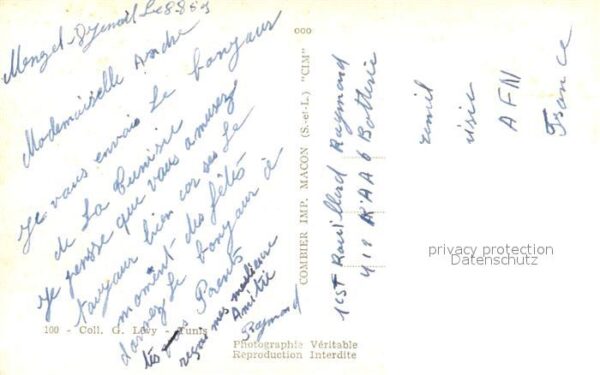 Menzel
Mademoiselle Andre
Je vous envois Le bonjour
de La Tunisie
Je pensse que vous amusez
toujour bien car ses Le
moment des fêtes
donnez Le bonjour à
vos Parents
reçois mes meilleure
Amitié
Raymond
100 - Coll. G. Lévy - Tunis
COMBIER IMP. MACON (S.-et-L.) "CIM"
Photographie Véritable
Reproduction Interdite
Raymond
6 Batterie
AFN
France
privacy protection
Datenschutz